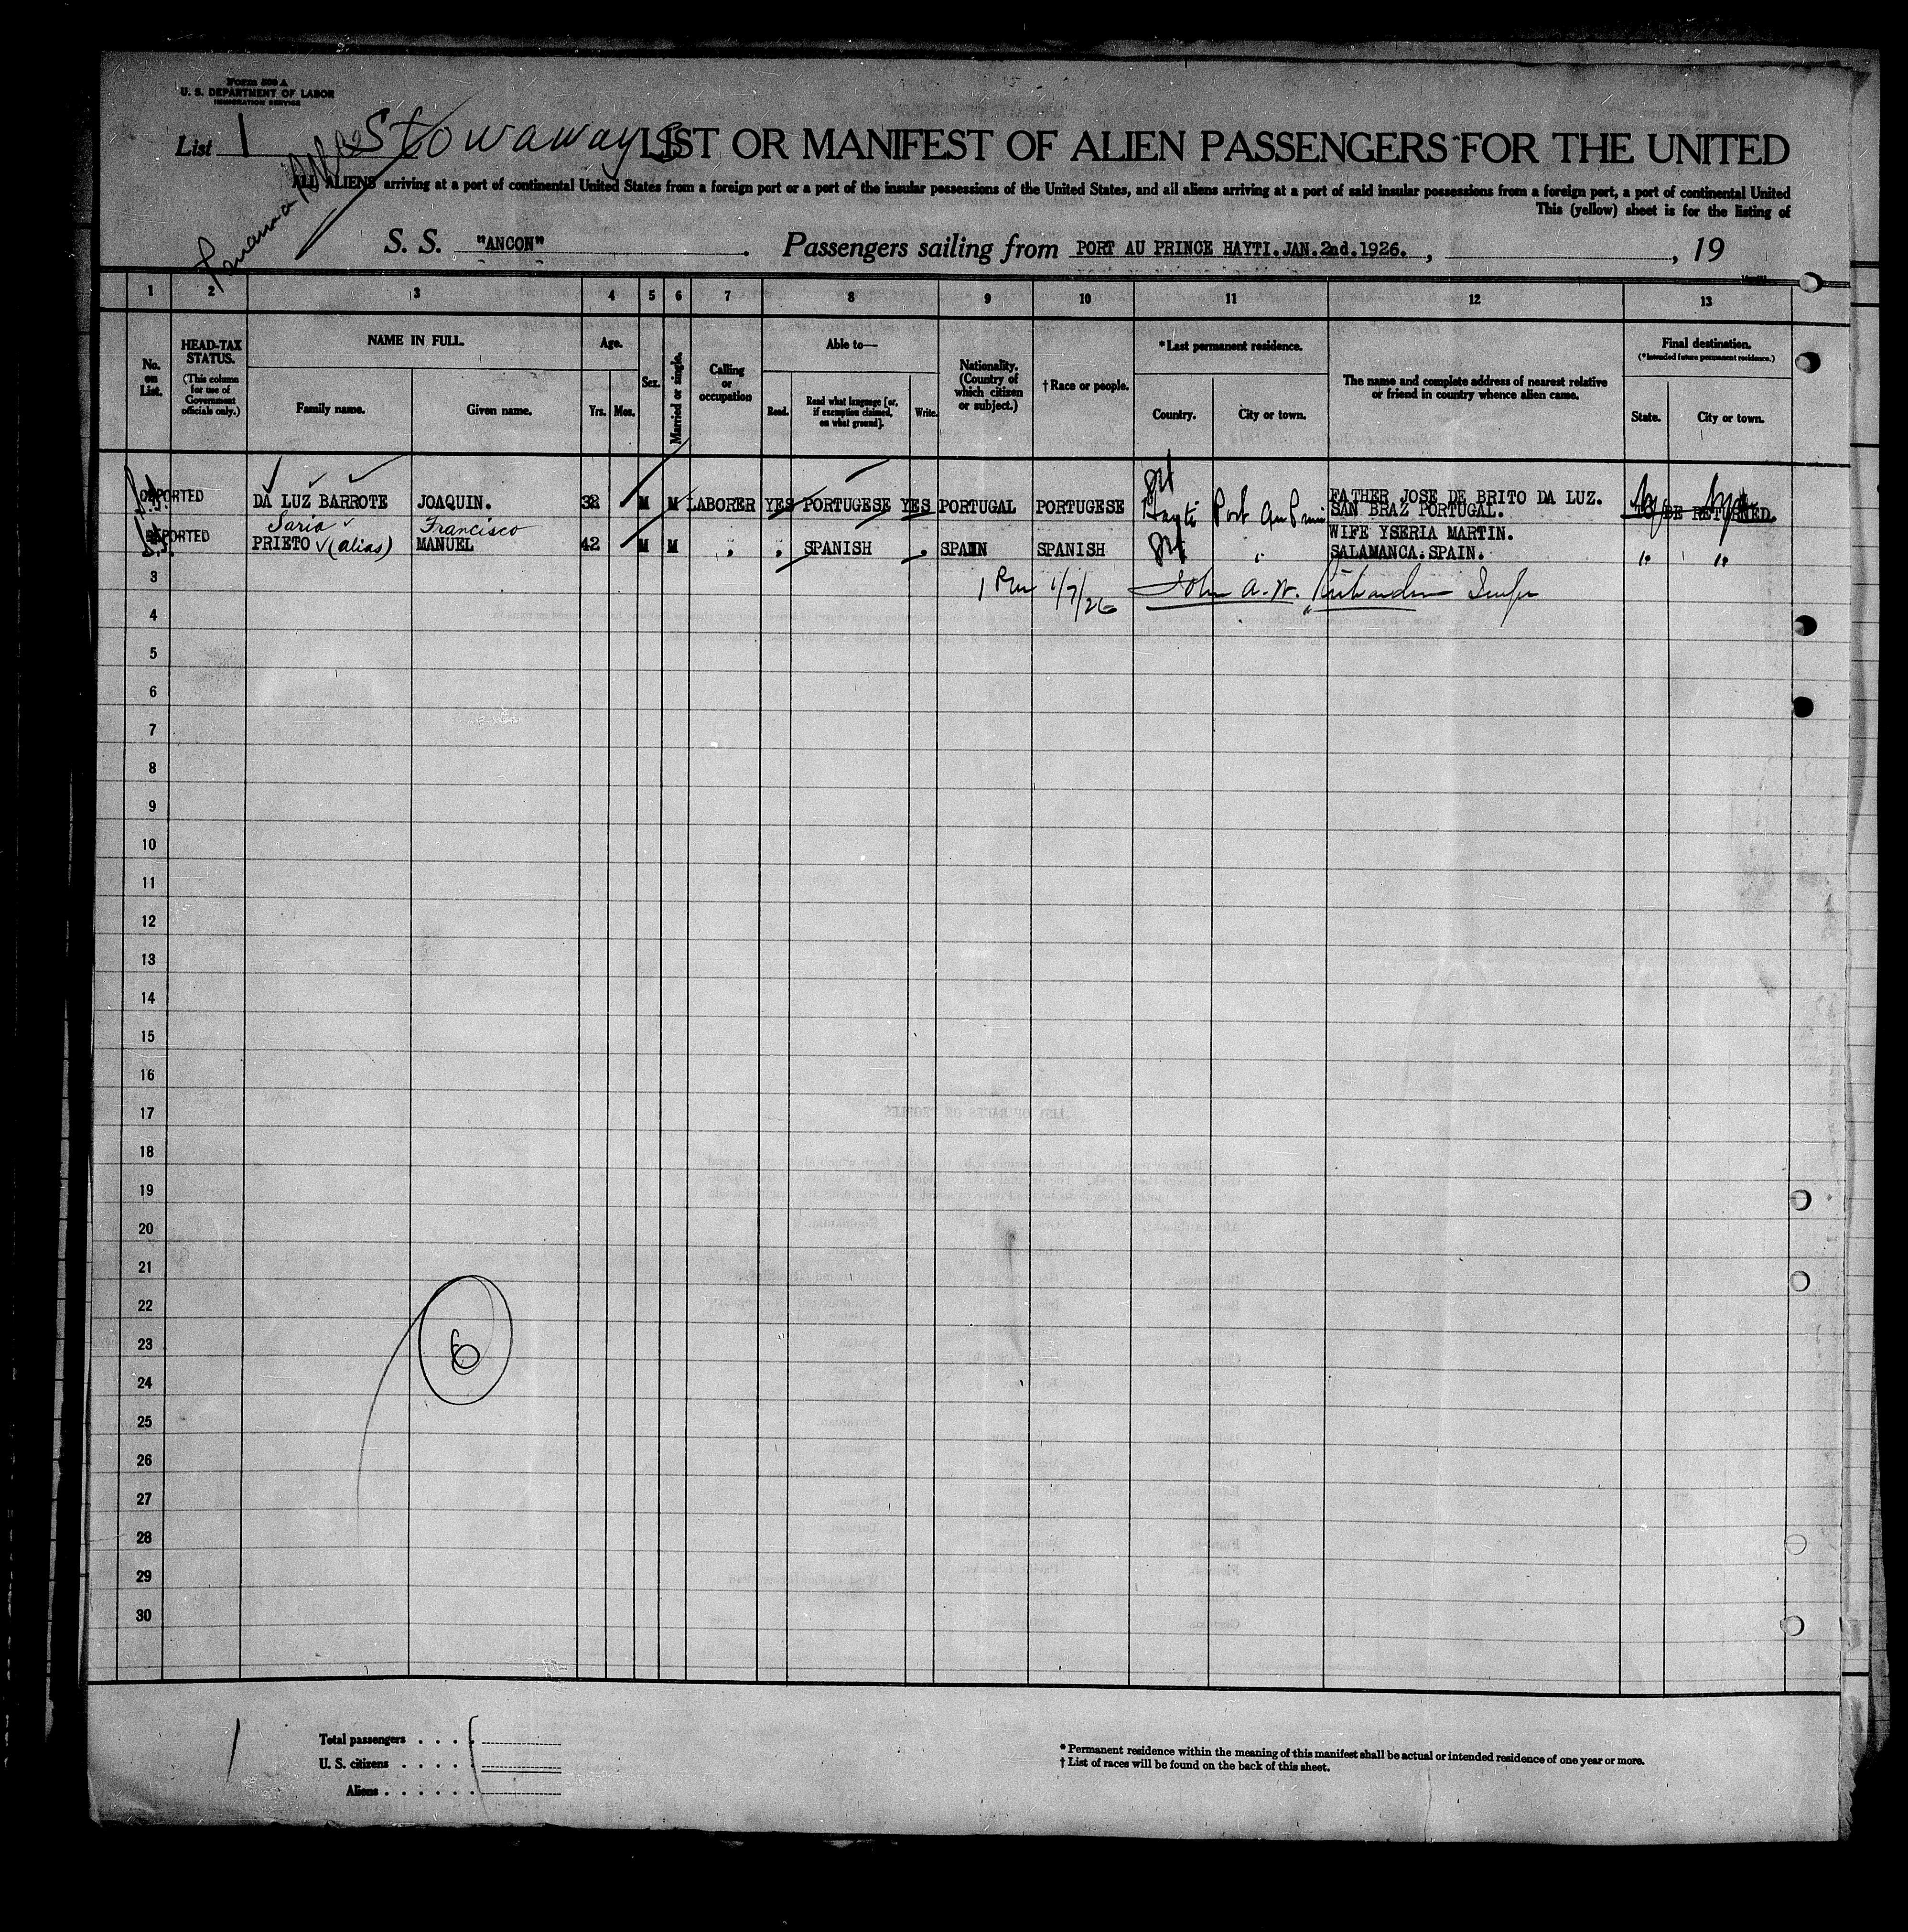 Form 500 A
U. S. DEPARTMENT OF LABOR
IMMIGRATION SERVICE
List 1
Stowaways
LIST OR MANIFEST OF ALIEN PASSENGERS FOR THE UNITED
ALL ALIENS arriving at a port of continental United States from a foreign port or a port of the insular possessions of the United States, and all aliens arriving at a port of said insular possessions from a foreign port, a port of continental United
This (yellow) sheet is for the listing of
S. S. "ANCON". Passengers sailing from PORT AU PRINCE HAYTI.JAN.2nd.1926. , , 19
1 2 3 4 5 6 7 8 9 10 11 12 13
No. on List.
HEAD-TAX STATUS.
(This column for use of Government officials only.)
NAME IN FULL.
Family name. Given name.
Age.
Yrs. Mos.
Sex.
Married or single.
Calling or occupation
Able to—
Read. Read what language [or, if exemption claimed, on what ground]. Write.
Nationality. (Country of which citizen or subject.)
† Race or people.
* Last permanent residence.
Country. City or town.
The name and complete address of nearest relative or friend in country whence alien came.
Final destination.
(*Intended future permanent residence.)
State. City or town.
DEPORTED DA LUZ BARROTE JOAQUIN. 38 M M LABORER YES PORTUGESE YES PORTUGAL PORTUGESE Hayti Port Au Prin FATHER JOSE DE BRITO DA LUZ.
SAN BRAZ PORTUGAL. TO BE RETURNED.
Saria Francisco
DEPORTED PRIETO (alias) MANUEL 42 M M " " SPANISH " SPAIN SPANISH " WIFE YSERIA MARTIN.
SALAMANCA.SPAIN. " "
3
1 Pm 1/7/26 John A. W. Richardson
4
5
6
7
8
9
10
11
12
13
14
15
16
17
18
19
20
21
22
23
24
25
26
27
28
29
30
6
1
Total passengers . . . .
U. S. citizens . . . . .
Aliens . . . . . .
* Permanent residence within the meaning of this manifest shall be actual or intended residence of one year or more.
† List of races will be found on the back of this sheet.